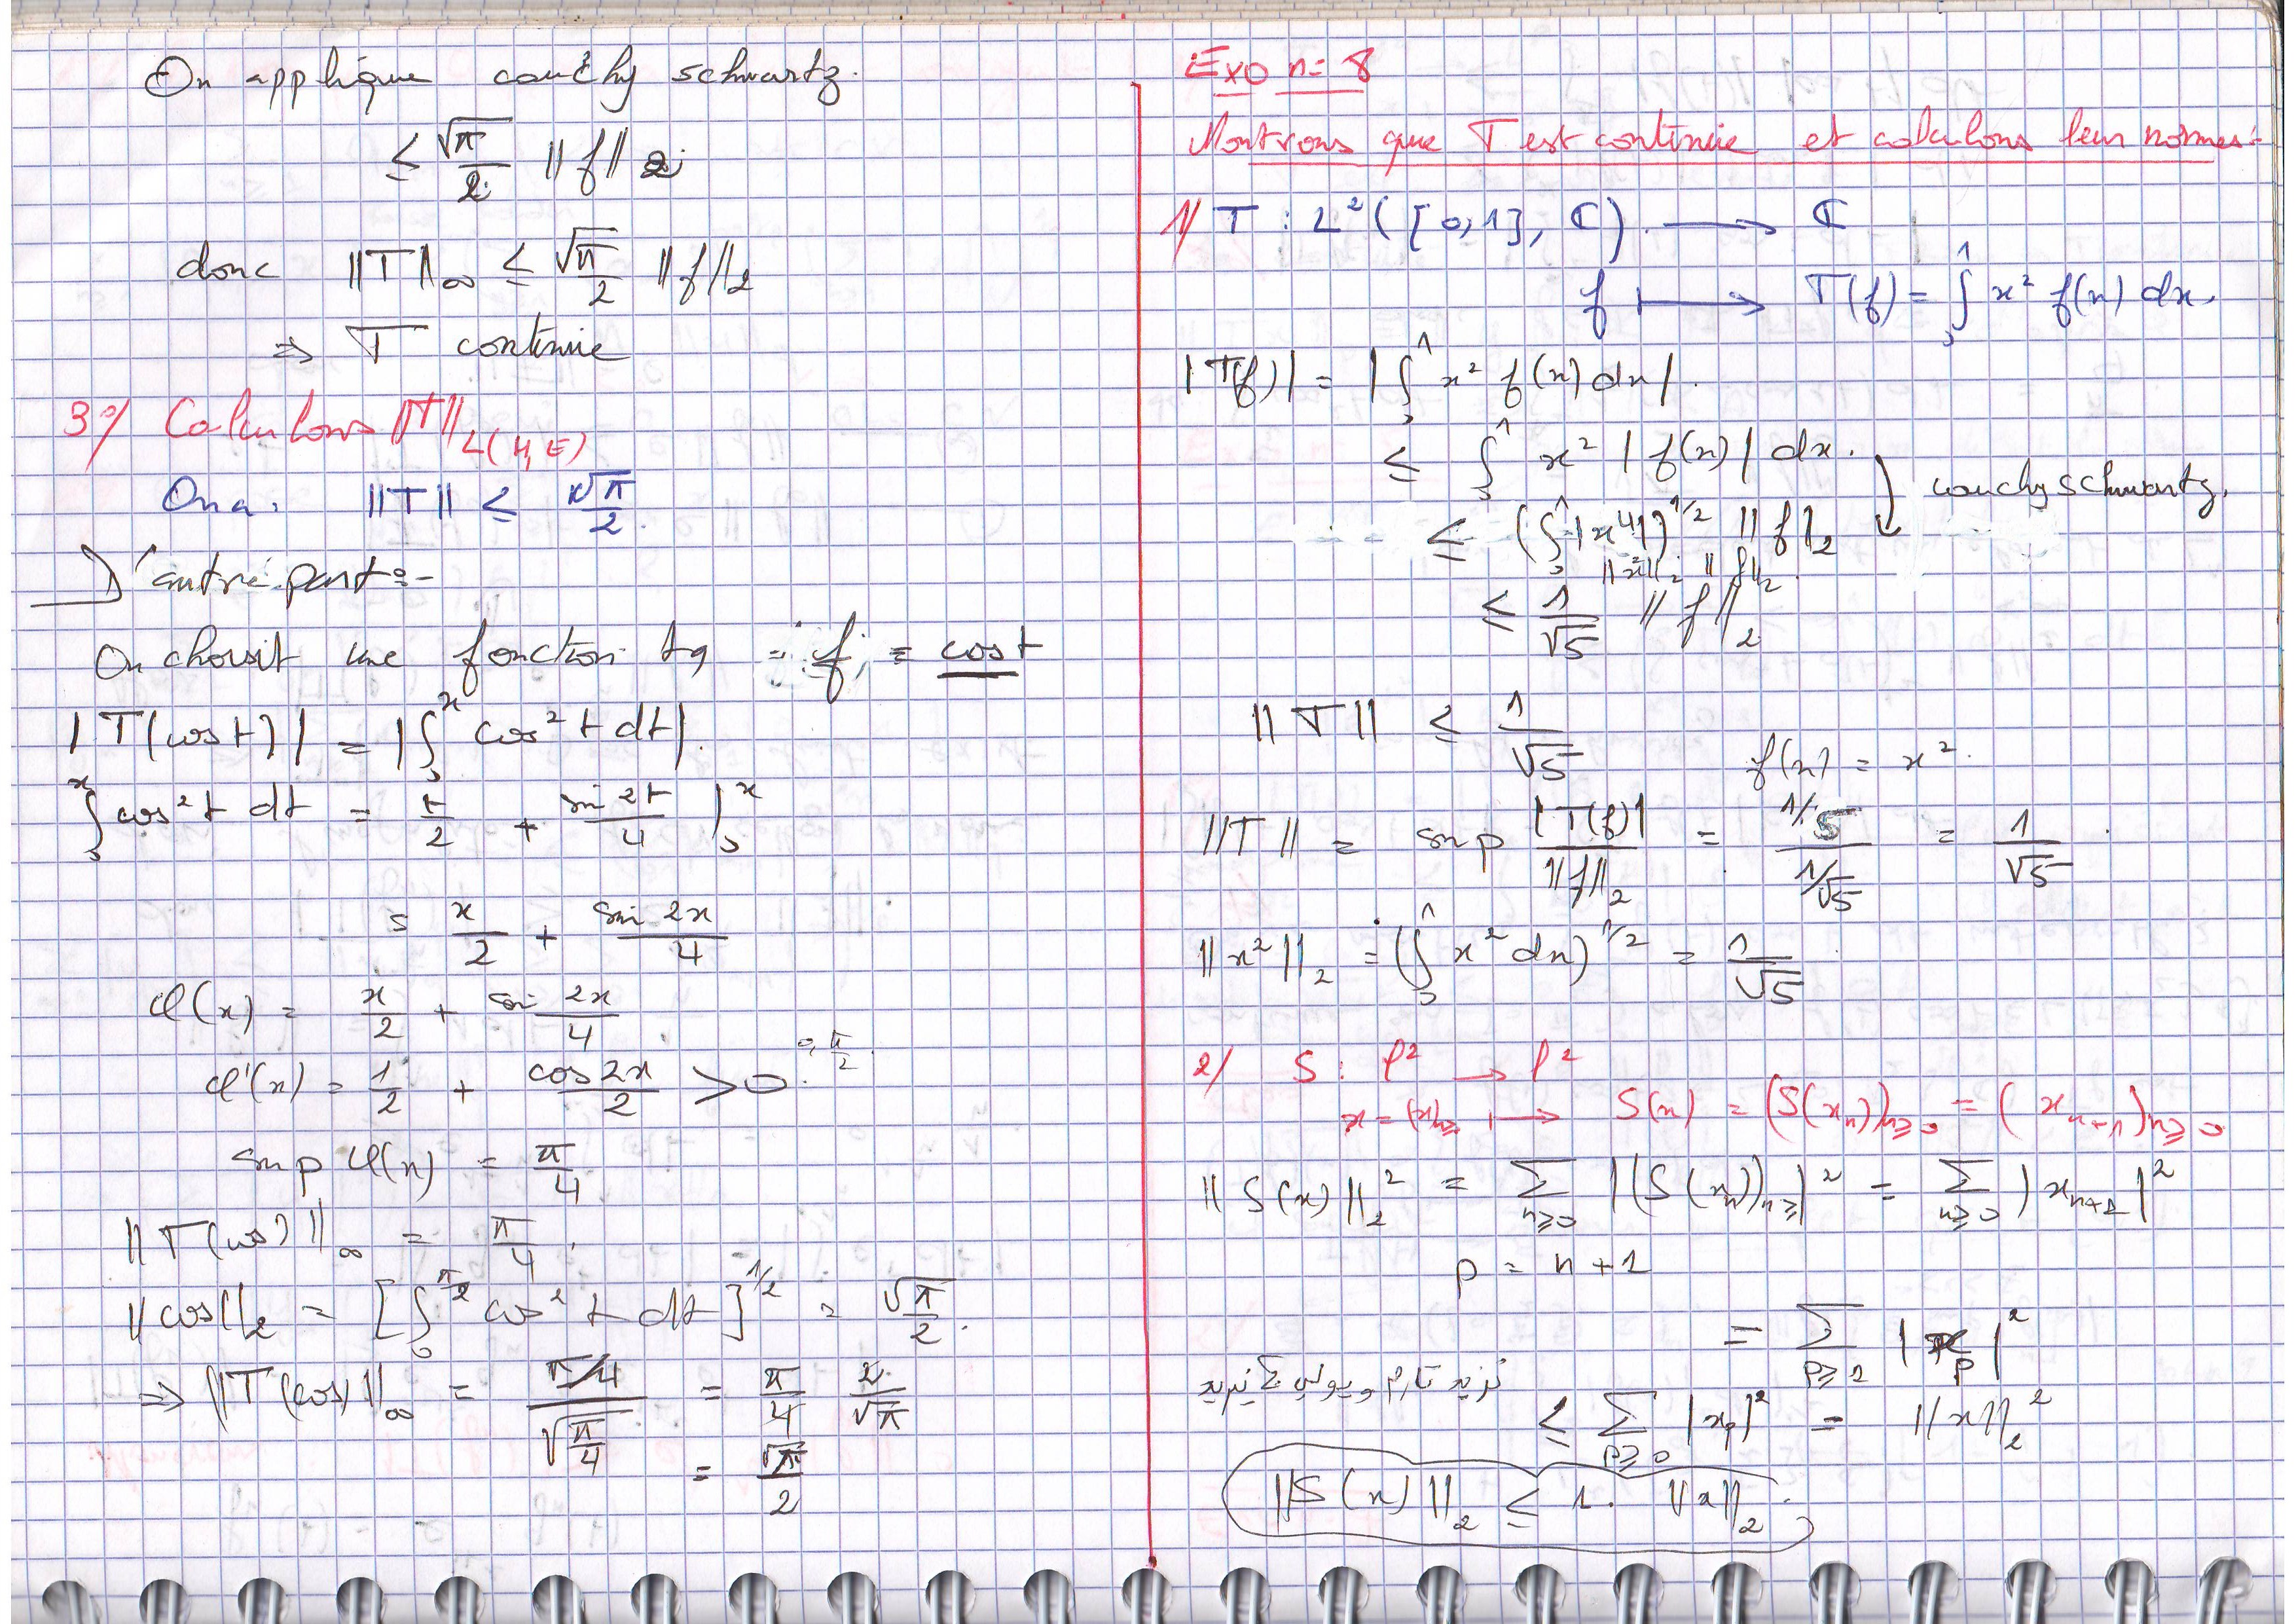 On applique cauchy schwartz.
≤ √π/2 ‖f‖2
donc ‖T‖∞ ≤ √π/2 ‖f‖2
⇒ T continue
3°/ Calculons ‖T‖L(H,E)
On a: ‖T‖ ≤ √π/2.
D'autre part:-
On choisit une fonction tq f = cost
|T(cost)| = |∫₀ˣ cos²t dt|.
∫₀ˣ cos²t dt = t/2 + sin 2t/4 |₀ˣ
= x/2 + sin 2x/4
φ(x) = x/2 + sin 2x/4
φ'(x) = 1/2 + cos 2x/2 > 0. 0,π/2.
sup φ(x) = π/4
‖T(cos)‖∞ = π/4.
‖cos‖2 = [∫₀^π/2 cos²t dt]^1/2 = √π/2.
⇒ ‖T(cos)‖∞ = (π/4)/√(π/4) = π/4 2/√π
= √π/2
Exo n= 8
Montrons que T est continue et calculons leur normes:
1/ T : L²([0,1], ℂ) ⟶ ℂ
f ⟼ T(f) = ∫₀¹ x² f(x) dx.
|T(f)| = |∫₀¹ x² f(x) dx|.
≤ ∫₀¹ x² |f(x)| dx.
cauchy schwartz.
≤ (∫₀¹ |x⁴|)^1/2 ‖f‖2
‖x²‖2 ‖f‖2.
≤ 1/√5 ‖f‖2
‖T‖ ≤ 1/√5
f(x) = x².
‖T‖ = sup |T(f)|/‖f‖2 = (1/5)/(1/√5) = 1/√5.
‖x²‖2 = (∫₀¹ x² dx)^1/2 = 1/√5
2/ S : l² → l²
x = (x)n≥ ⟼ S(x) = (S(xn))n≥0 = (xn+1)n≥0
‖S(x)‖2² = Σn≥0 |(S(xn))n≥|² = Σn≥0 |xn+1|²
p = n+1
= Σp≥1 |xp|²
≤ Σp≥0 |xp|² = ‖x‖2²
‖S(x)‖2 ≤ 1. ‖x‖2.